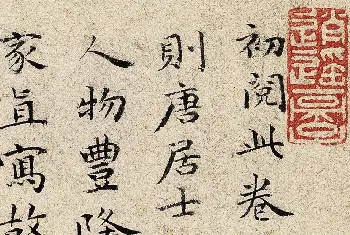 初閱此卷
則唐居士
人物豐隆
家直寫故